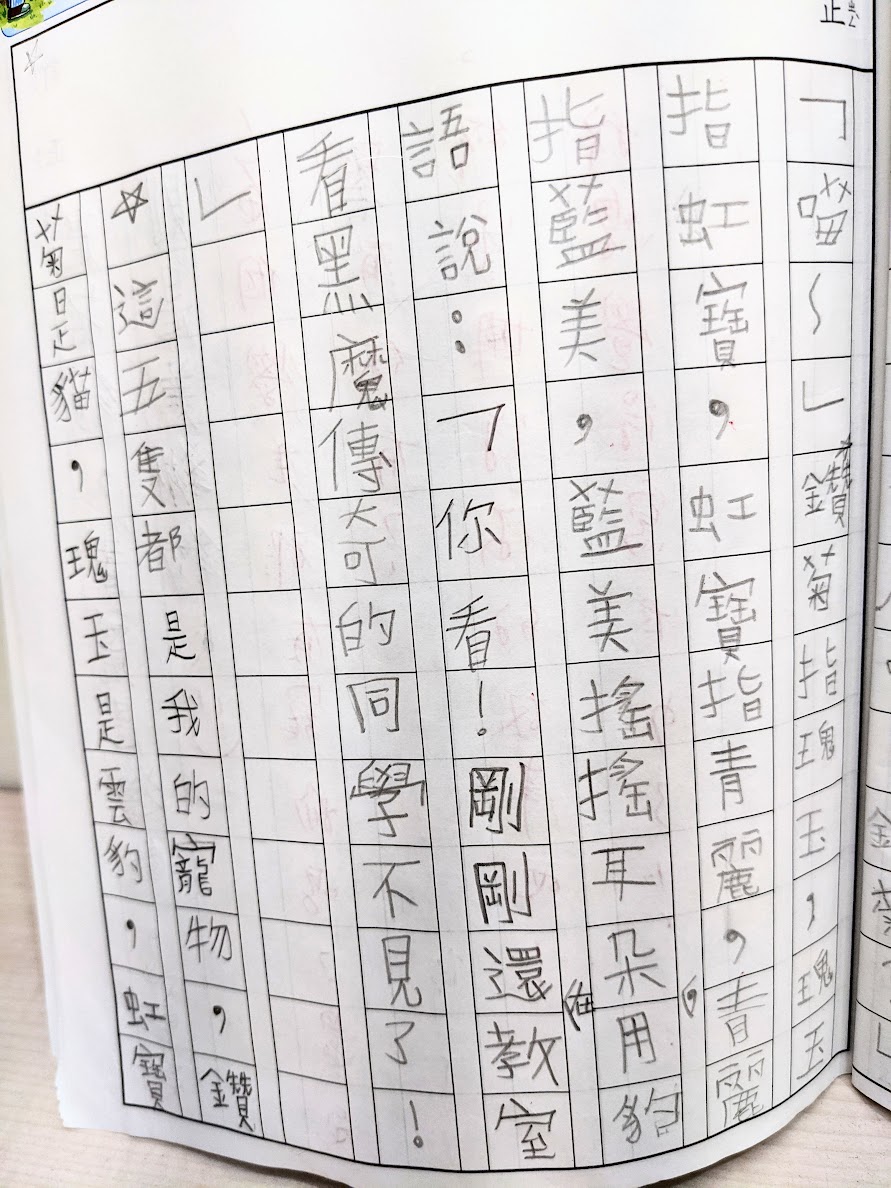 正
「喵～」鑽菊指瑰玉，瑰玉
指虹寶，虹寶指青麗，青麗
指藍美，藍美搖搖耳朵，用豹
語說：「你看！剛剛還在教室
看黑魔傳奇的同學不見了！
」
☆這五隻都是我的寵物，鑽
菊是貓，瑰玉是雲豹，虹寶